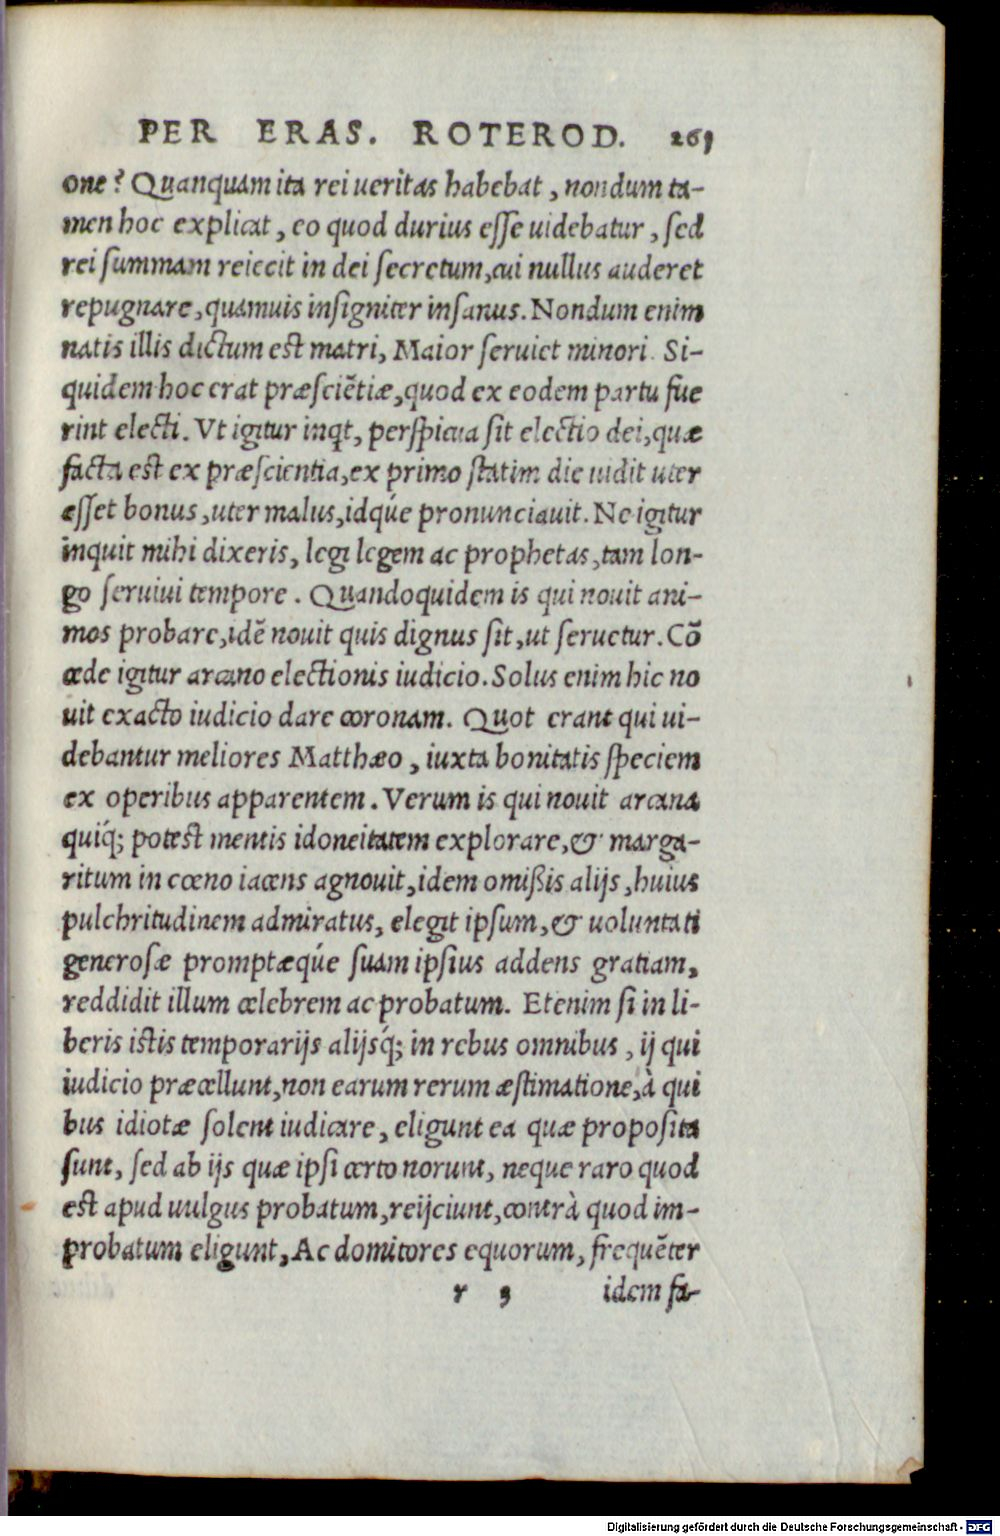 PER ERAS. ROTEROD. 265
one? Quanquam ita rei ueritas habebat, nondum ta-
men hoc explicat, eo quod durius eſſe uidebatur, ſed
rei ſummam reiecit in dei ſecretum, cui nullus auderet
repugnare, quamuis inſigniter inſanus. Nondum enim
natis illis dictum est matri, Maior ſeruiet minori. Si-
quidem hoc erat præſciẽtiæ, quod ex eodem partu fue
rint electi. Vt igitur inqt, perſpicua ſit electio dei, quæ
facta est ex præſcientia, ex primo ſtatim die uidit uter
eſſet bonus, uter malus, idq́ue pronunciauit. Ne igitur
inquit mihi dixeris, legi legem ac prophetas, tam lon-
go ſeruiui tempore. Quandoquidem is qui nouit ani-
mos probare, idẽ nouit quis dignus ſit, ut ſeruetur. Cõ
cede igitur arcano electionis iudicio. Solus enim hic no
uit exacto iudicio dare coronam. Quot erant qui ui-
debantur meliores Matthæo, iuxta bonitatis ſpeciem
ex operibus apparentem. Verum is qui nouit arcana
quiq́; potest mentis idoneitatem explorare, & marga-
ritum in cœno iacens agnouit, idem omißis alijs, huius
pulchritudinem admiratus, elegit ipſum, & uoluntati
generoſæ promptæq́ue ſuam ipſius addens gratiam,
reddidit illum celebrem ac probatum. Etenim ſi in li-
beris istis temporarijs alijsq́; in rebus omnibus, ij qui
iudicio præcellunt, non earum rerum æſtimatione, à qui
bus idiotæ ſolent iudicare, eligunt ea quæ propoſita
ſunt, ſed ab ijs quæ ipſi certo norunt, neque raro quod
est apud uulgus probatum, reijciunt, contrà quod im-
probatum eligunt, Ac domitores equorum, frequẽter
r 5 idem fa-
Digitalisierung gefördert durch die Deutsche Forschungsgemeinschaft - DFG